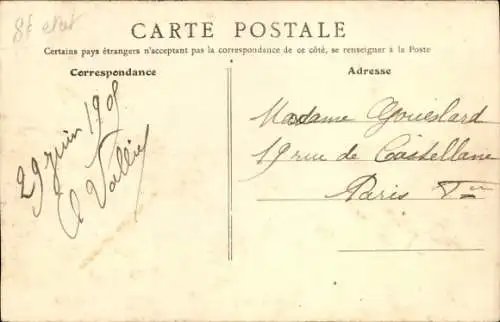 8f etat
CARTE POSTALE
Certains pays étrangers n'acceptant pas la correspondance de ce côté, se renseigner à la Poste
Correspondance
Adresse
29 juin 1905
A Vallin
Madame Goueslard
19 rue de Castellane
Paris